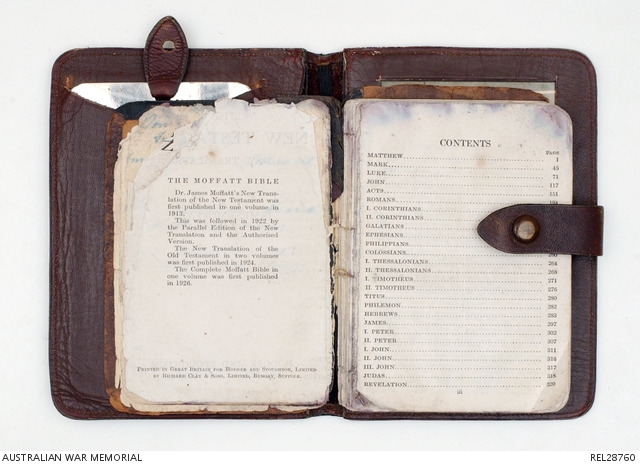 N
THE MOFFATT BIBLE
Dr. James Moffatt's New Trans-
lation of the New Testament was
first published in one volume in
1913.
This was followed in 1922 by
the Parallel Edition of the New
Translation and the Authorised
Version.
The New Translation of the
Old Testament in two volumes
was first published in 1924.
The Complete Moffatt Bible in
one volume was first published
in 1926.
PRINTED IN GREAT BRITAIN FOR HODDER AND STOUGHTON, LIMITED
BY RICHARD CLAY & SONS, LIMITED, BUNGAY, SUFFOLK.
CONTENTS
PAGE
MATTHEW 1
MARK 45
LUKE 71
JOHN 117
ACTS 151
ROMANS
I. CORINTHIANS
II. CORINTHIANS
GALATIANS
EPHESIANS
PHILIPPIANS
COLOSSIANS
I. THESSALONIANS 264
II. THESSALONIANS 268
I. TIMOTHEUS 271
II. TIMOTHEUS 276
TITUS 280
PHILEMON 282
HEBREWS 283
JAMES 297
I. PETER 302
II. PETER 307
I. JOHN 311
II. JOHN 316
III. JOHN 317
JUDAS 318
REVELATION
iii
AUSTRALIAN WAR MEMORIAL
REL28760